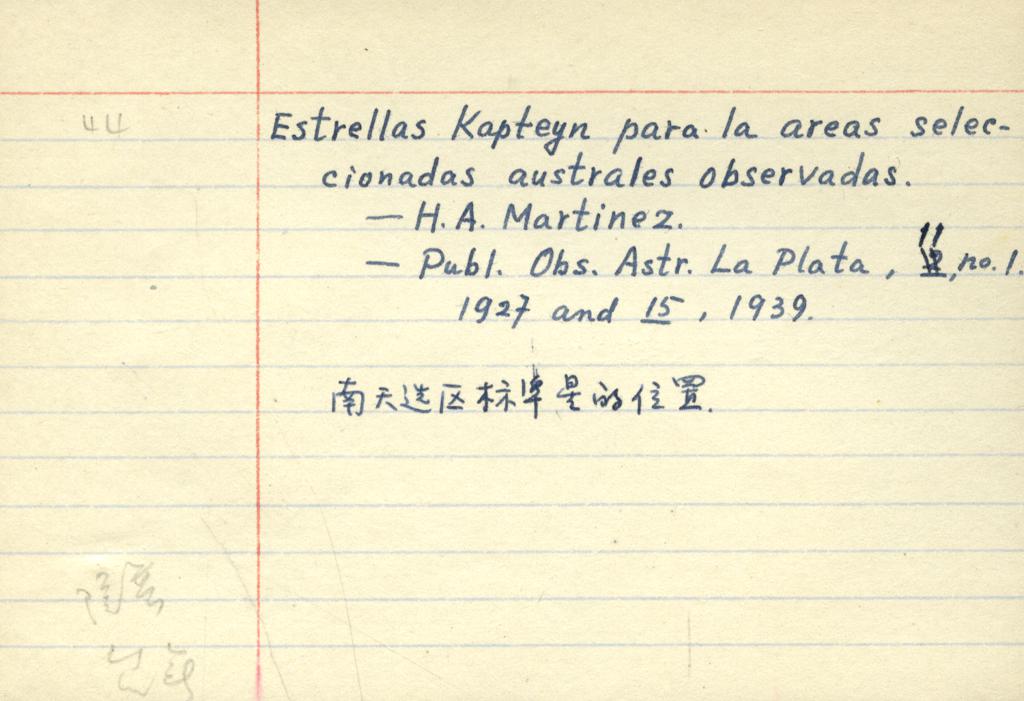 44
Estrellas Kapteyn para la areas selec-
cionadas australes observadas.
— H. A. Martinez.
— Publ. Obs. Astr. La Plata, 11, no. 1.
1927 and 15, 1939.
南天选区标准星的位置.